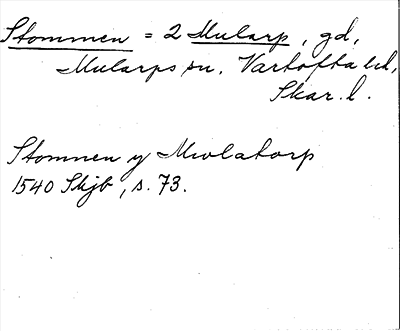 Stommen = 2 Mularp, gd,
Mularps sn. Vartofta hd,
Skar. l.
Stomnen y Mwlatorp
1540 Skjb, s. 73.